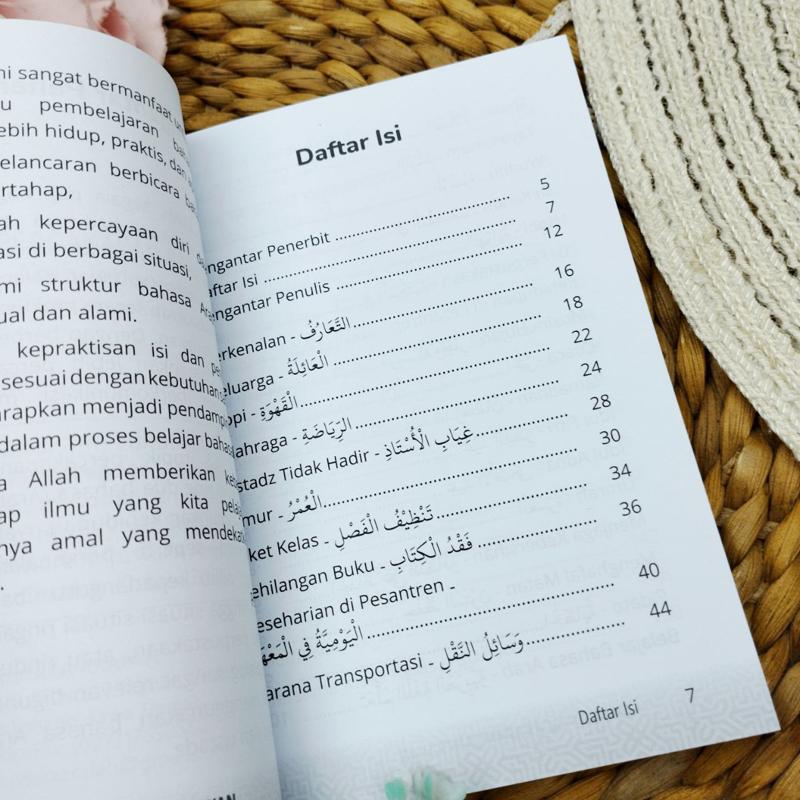 ni sangat bermanfaat
u pembelajaran
ebih hidup, praktis, dan
elancaran berbicara
ertahap,
ah kepercayaan diri
asi di berbagai situasi,
mi struktur bahasa
ual dan alami.
kepraktisan isi dan
sesuai dengan kebutuhan
arapkan menjadi pendamp
dalam proses belajar bahas
a Allah memberikan
ap ilmu yang kita
nya amal yang mendeka
Daftar Isi
engantar Penerbit 5
aftar Isi 7
engantar Penulis 12
erkenalan - التَّعَارُفُ 16
eluarga - الْعَائِلَةُ 18
opi - الْقَهْوَةُ 22
ahraga - الرِّيَاضَةِ 24
stadz Tidak Hadir - غِيَابِ الْأُسْتَاذِ 28
mur - الْعُمْرُ 30
ket Kelas - تَنْظِيْفُ الْفَصْلِ 34
ehilangan Buku - فَقْدُ الْكِتَابِ 36
eseharian di Pesantren -
الْيَوْمِيَّةُ فِي الْمَعْهَ 40
arana Transportasi - وَسَائِلُ النَّقْلِ 44
Daftar Isi 7